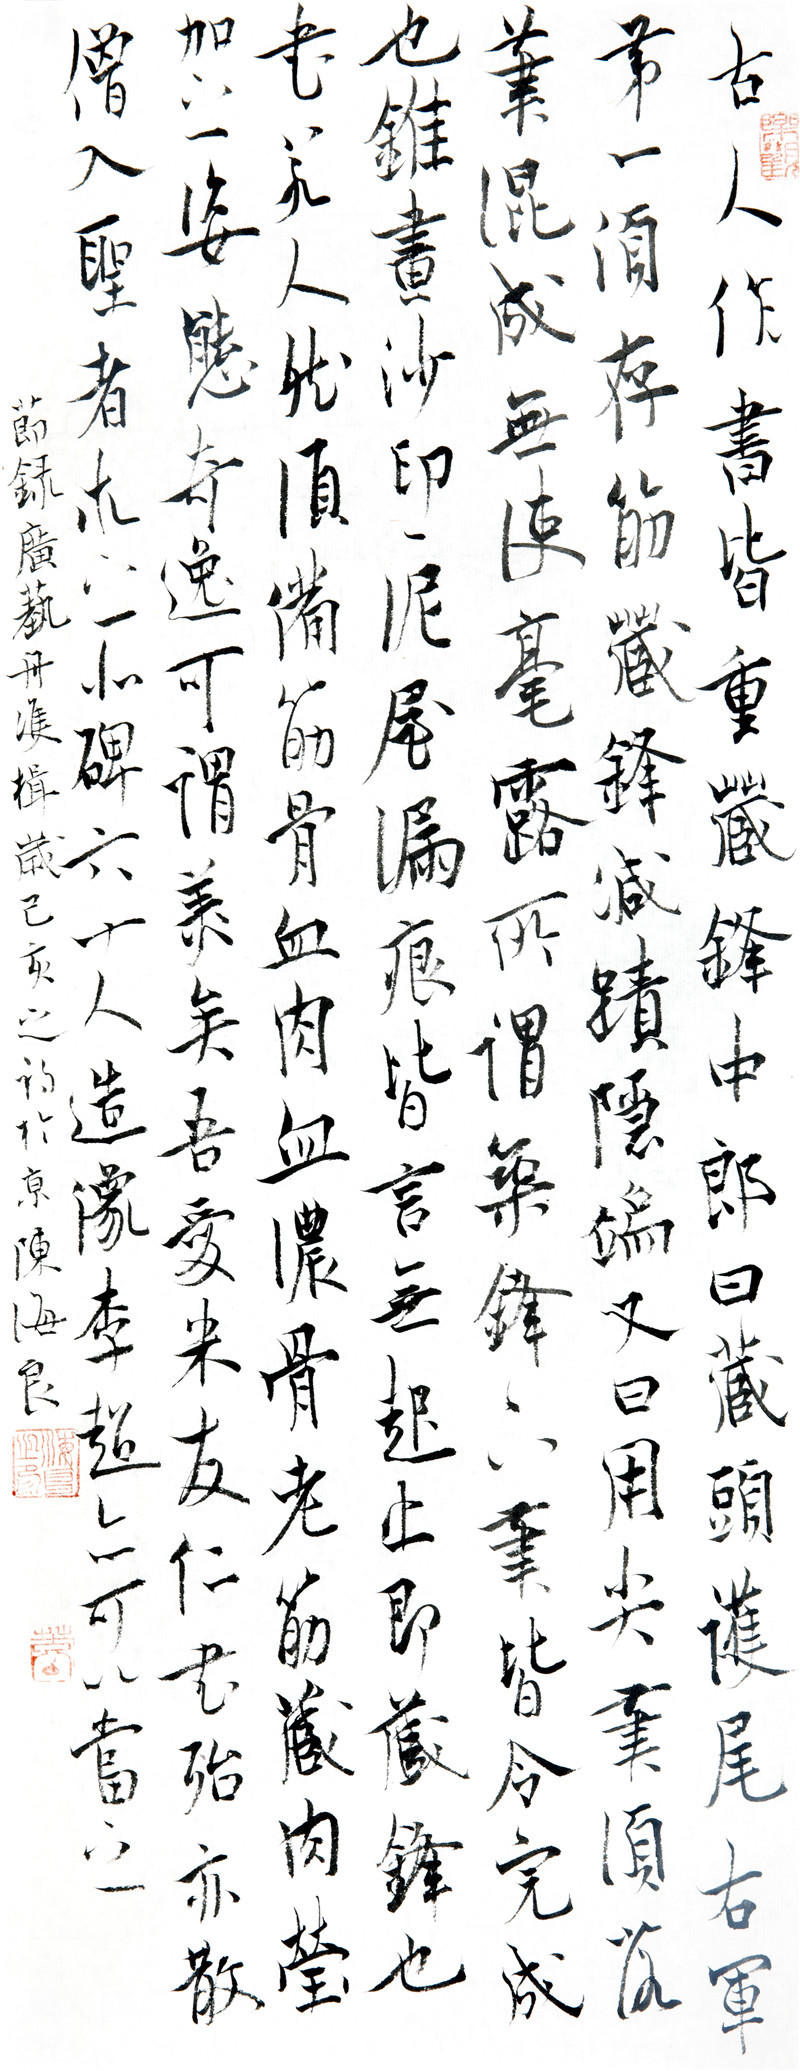 古人作書皆重藏鋒中郎曰藏頭護尾右軍
第一須存筋藏鋒滅蹟隱端又曰用尖筆須落
筆混成無使毫露所謂築鋒下筆皆令完成
也錐畫沙印印泥屋漏痕皆言無起止即藏鋒也
書若人然須備筋骨血肉血濃骨老筋藏肉瑩
加以姿態奇逸可謂美矣吾愛米友仁書殆亦散
僧入聖者求之北碑六十人造像李超亦可以當之
節録廣藝舟雙楫歲己亥之初於京陳海良